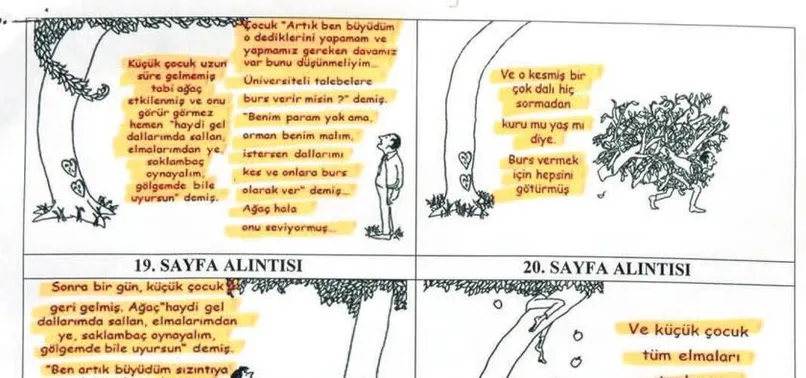 Küçük çocuk uzun
süre gelmemiş
tabi ağaç
etkilenmiş ve onu
görür görmez
hemen "haydi gel
dallarımda sallan,
elmalarımdan ye,
saklambaç
oynayalım,
gölgemde bile
uyursun" demiş.
Çocuk "Artık ben büyüdüm
o dediklerini yapamam ve
yapmamız gereken davamız
var bunu düşünmeliyim...
Üniversiteli talebelere
burs verir misin ?" demiş.
"Benim param yok ama,
orman benim malım,
istersen dallarımı
kes ve onlara burs
olarak ver" demiş...
Ağaç hala
onu seviyormuş...
Ve o kesmiş bir
çok dalı hiç
sormadan
kuru mu yaş mı
diye.
Burs vermek
için hepsini
götürmüş
19. SAYFA ALINTISI
20. SAYFA ALINTISI
Sonra bir gün, küçük çocuk
geri gelmiş. Ağaç"haydi gel
dallarımda sallan, elmalarımdan
ye, saklambaç oynayalım,
gölgemde bile uyursun" demiş.
"Ben artık büyüdüm sızıntıya
Ve küçük çocuk
tüm elmaları